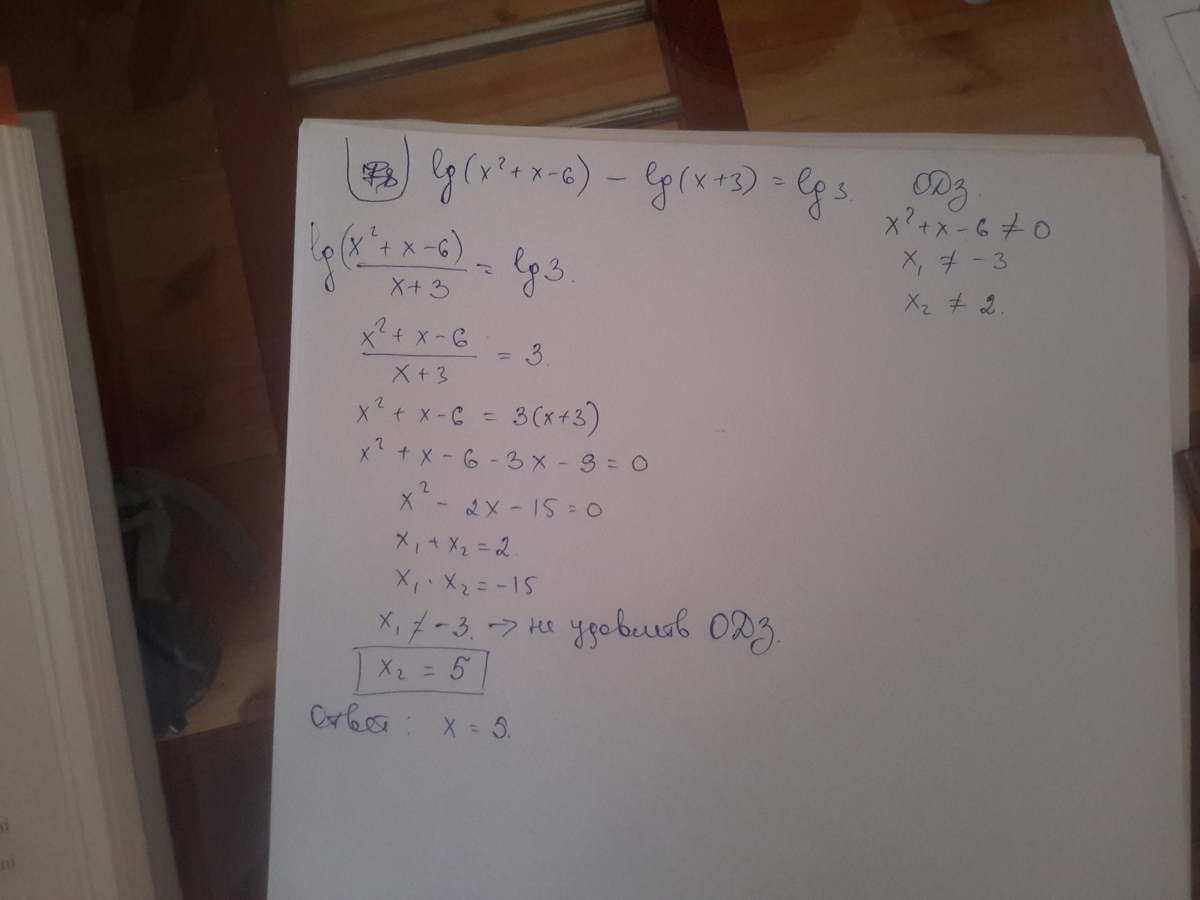 lg(x²+x-6) - lg(x+3) = lg 3. ОДЗ.
x²+x-6 ≠ 0
x₁ ≠ -3
x₂ ≠ 2.
lg (x²+x-6)/(x+3) = lg 3.
(x²+x-6)/(x+3) = 3.
x²+x-6 = 3(x+3)
x²+x-6-3x-9=0
x²-2x-15=0
x₁+x₂=2.
x₁·x₂=-15
x₁ ≠ -3. → не удовлетв ОДЗ.
x₂ = 5
Ответ: x = 5.